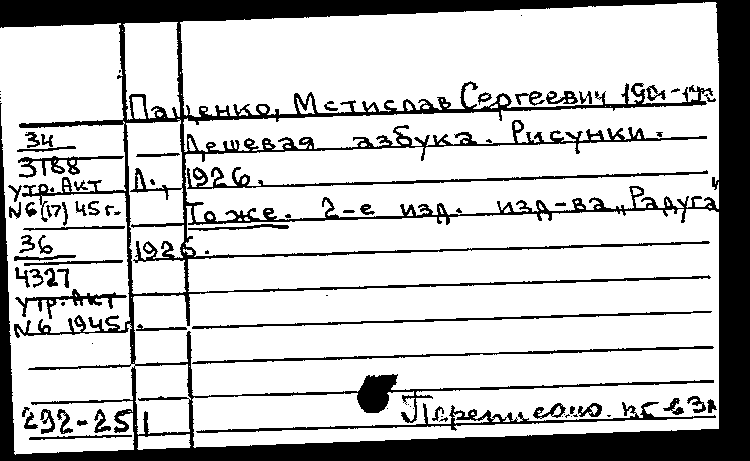 Пащенко, Мстислав Сергеевич, 1901-
34
3188
утр. Акт
N6(17) 45 г.
Дешевая азбука. Рисунки.
Л., 1926.
То же. 2-е изд. изд-ва „Радуга"
1926.
36
4327
утр. Акт
N6 1945г.
292-251
Переписано.